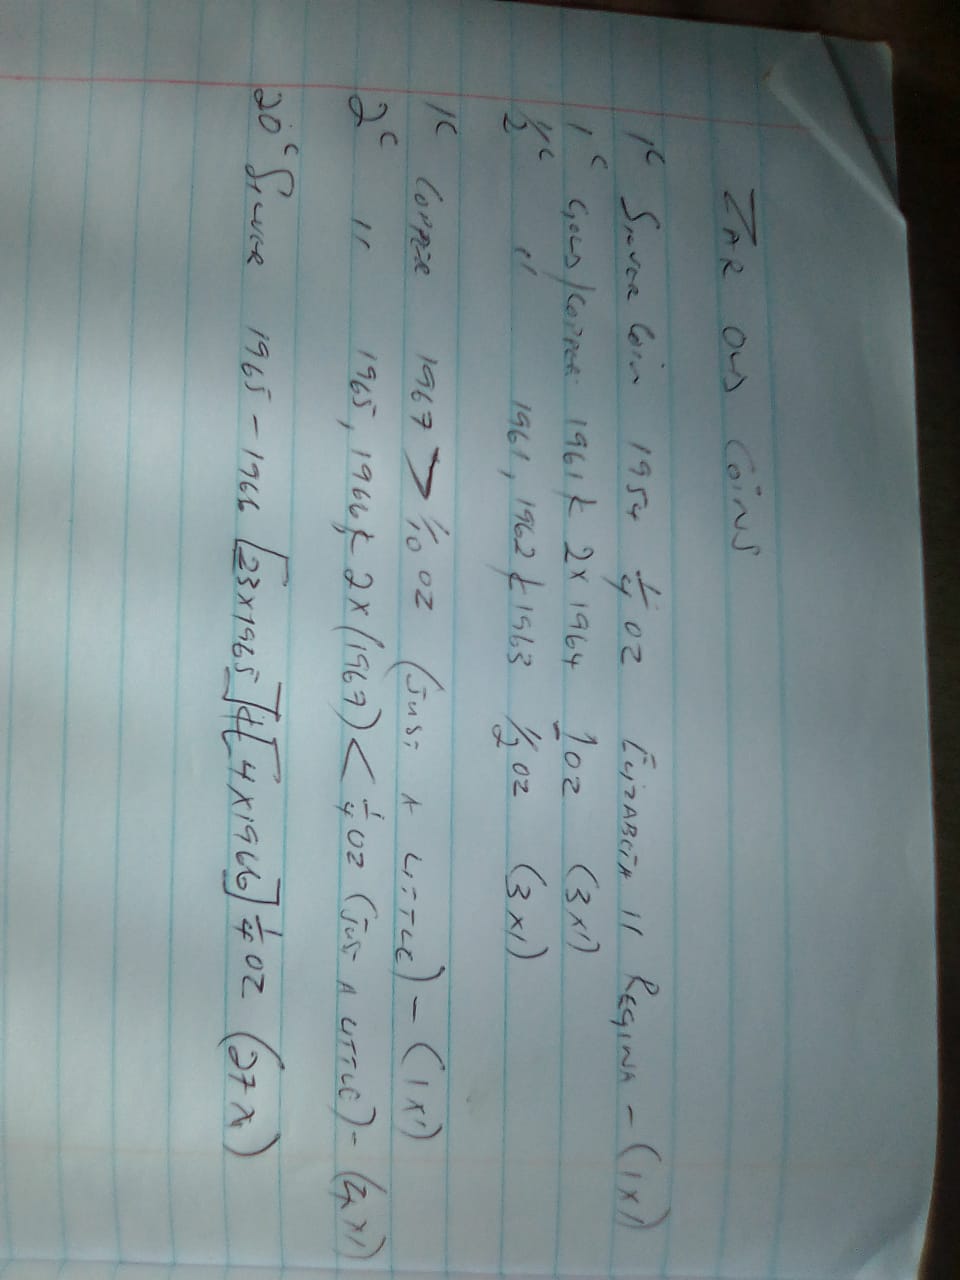 ZAR OLD COINS
1c SILVER COIN 1954 1/4 OZ ELIZABETH II REGINA - (1x1)
1c GOLD/COPPER 1961 & 2x1964 1 OZ (3x1)
1/2c " 1961, 1962 & 1963 1/2 OZ (3x1)
1c COPPER 1967 > 1/10 OZ (JUST A LITTLE) - (1x1)
2c " 1965, 1966 & 2x(1967) < 1/4 OZ (JUST A LITTLE) - (4x1)
20c SILVER 1965 - 1966 [23x1965] + [4x1966] 1/4 OZ (27x)